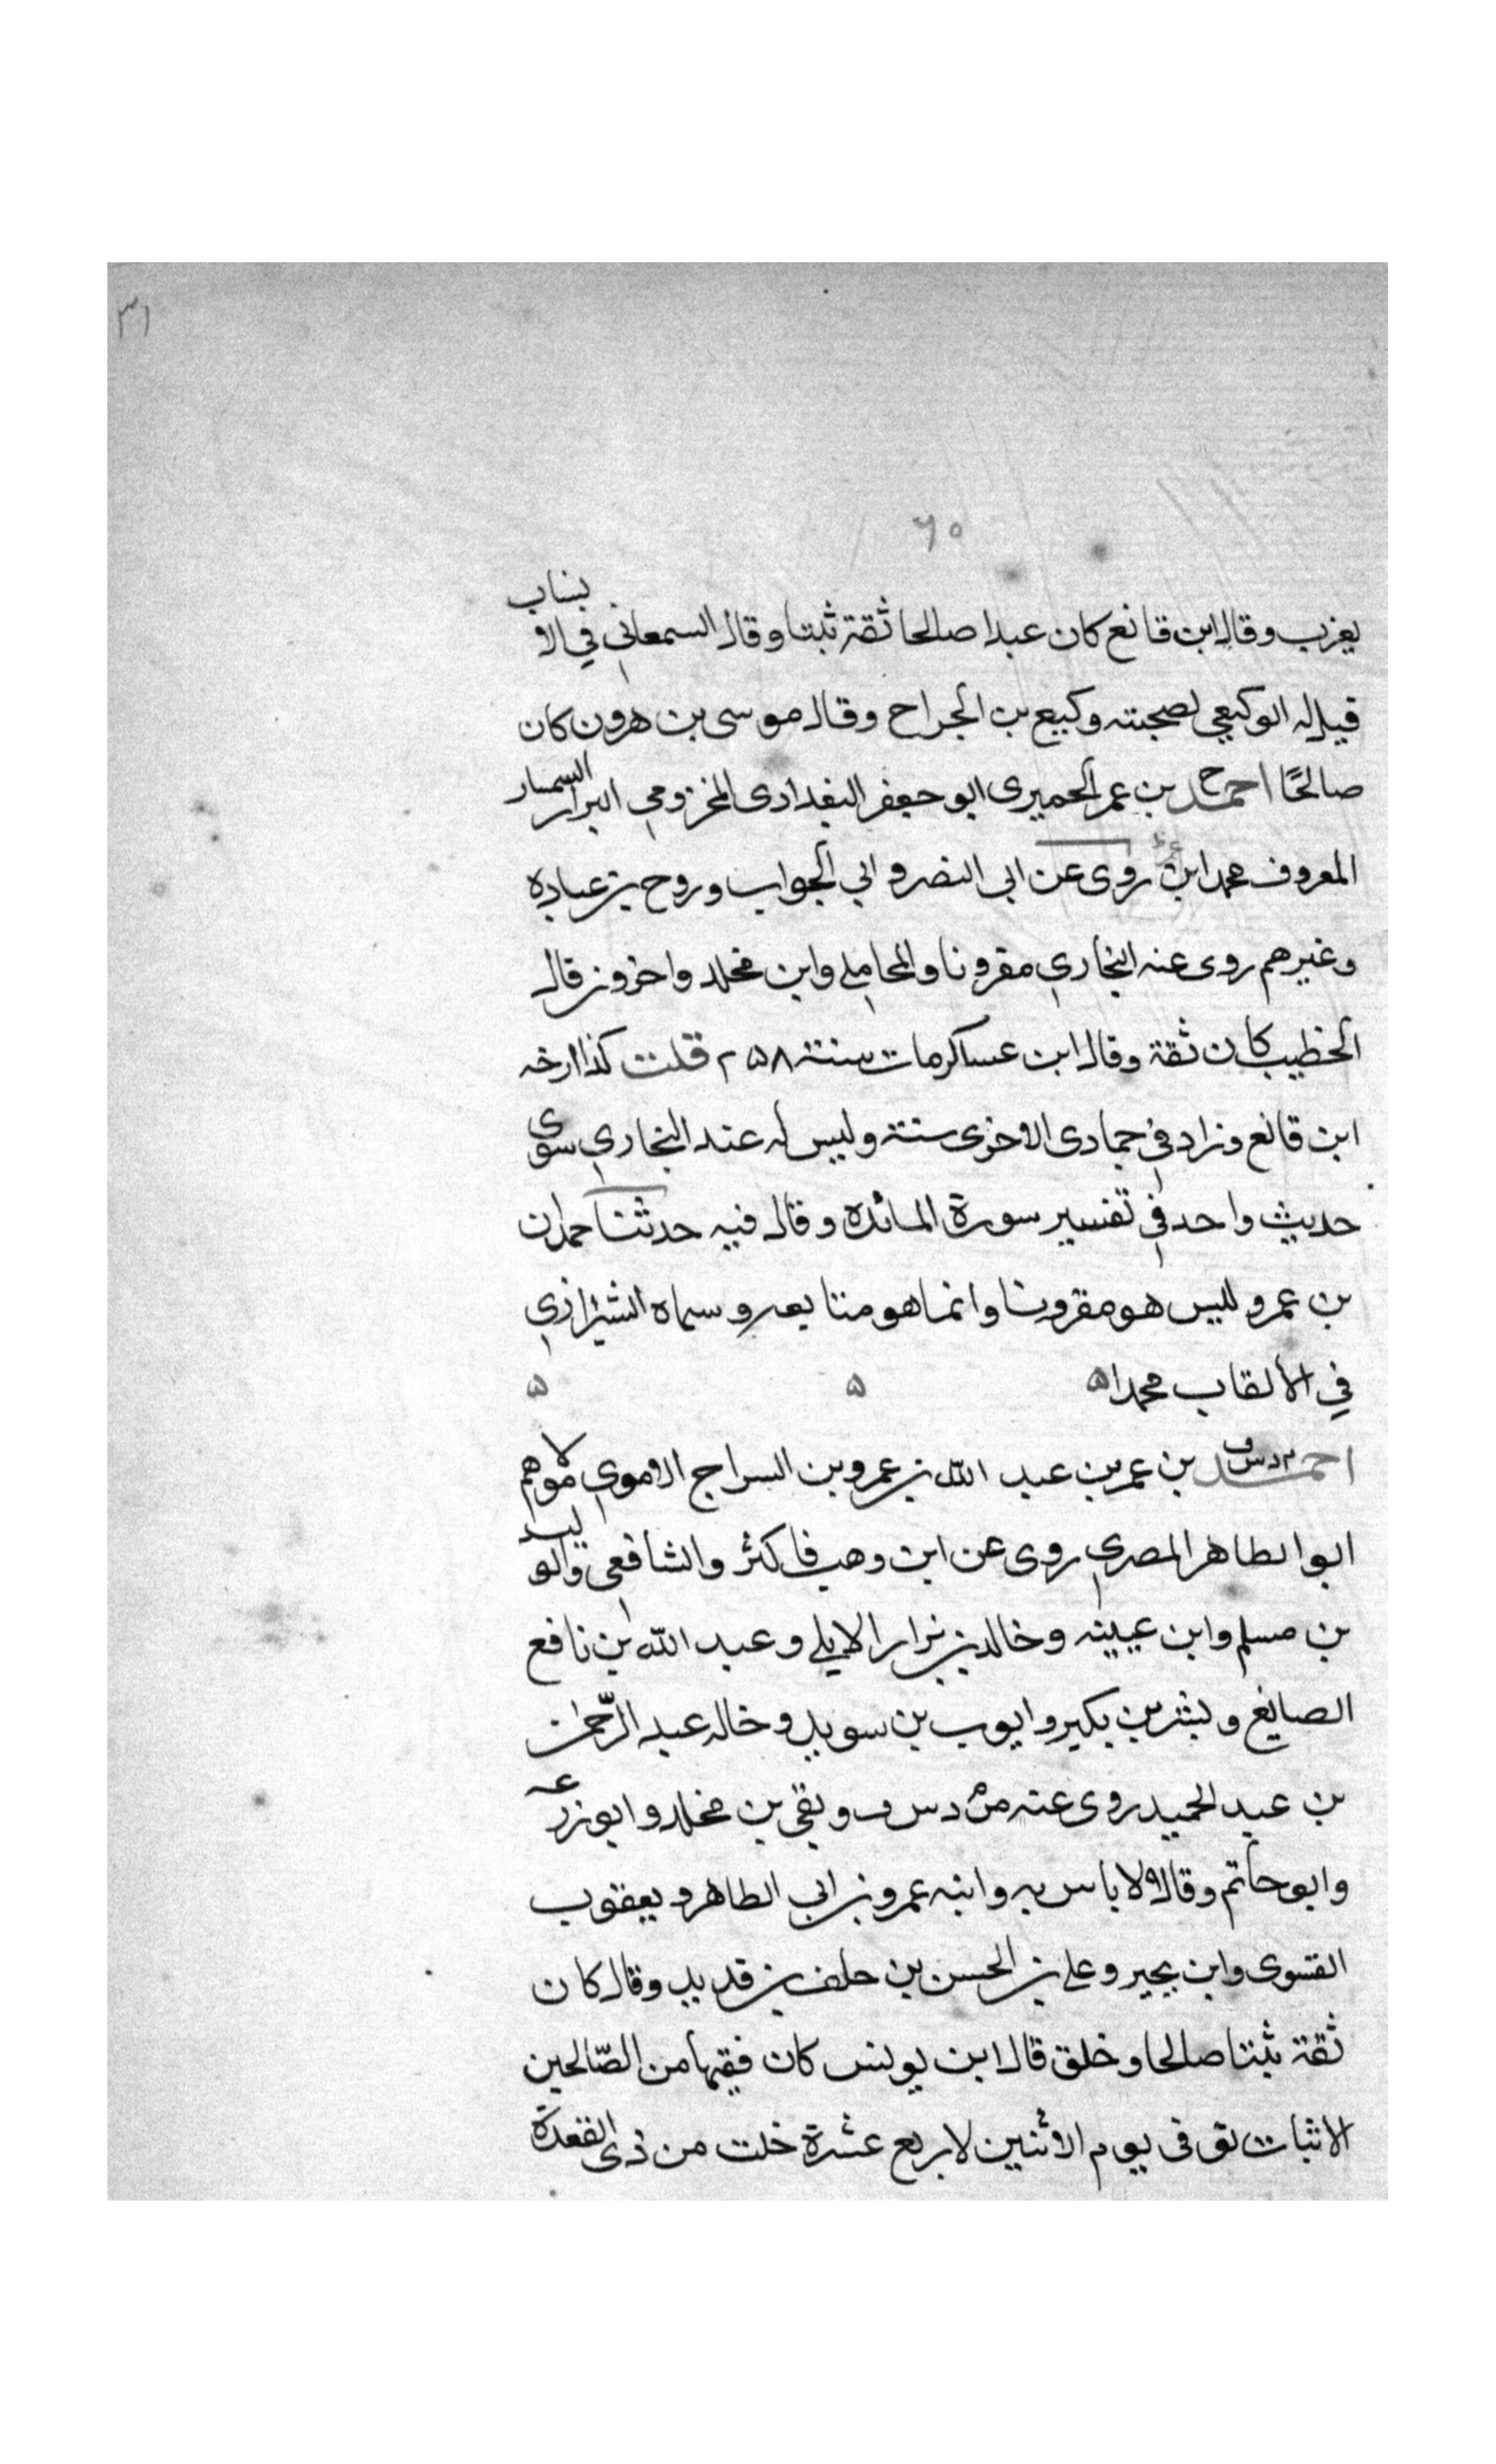 ٣١
٦٥
يغرب وقال ابن قانع كان عبدا صالحا ثقة ثبتا وقال السمعاني في الانساب
قيل له الوكيعي لصحبته وكيع بن الجراح وقال موسى بن هرون كان
صالحًا احمد خ بن عمر الحميرى ابو جعفر البغدادى المخزومي البزار السمسار
المعروف بحمدان روى عن ابى النضر و ابي الجواب وروح بن عباده
وغيرهم روى عنه البخاري مقرونا والمحاملي وابن مخلد واخرون قال
الخطيب كان ثقة وقال ابن عساكر مات سنة ٢٥٨ قلت كذا ارخه
ابن قانع وزاد في جمادى الاخرى سنة وليس له عند البخاري سوى
حديث واحد في تفسير سورة المائدة وقال فيه حدثنا حمدان
بن عمر وليس هو مقرونا وانما هو متابعه وسماه الشيرازي
في الألقاب محمدا ۵ ۵ ۵
احمد م د س ق بن عمر بن عبد الله بن عمرو بن السراج الاموي مولاهم
ابو الطاهر المصري روى عن ابن وهب فاكثر والشافعي والوليد
بن مسلم وابن عيينه وخالد بن نزار الايلي وعبد الله بن نافع
الصايغ وبشر بن بكير وايوب بن سويد وخاله عبد الرّحمن
بن عبد الحميد روى عنه م د س ق وبقي بن مخلد وابو زرعه
وابو حاتم وقال لا باس به وابنه عمرو بن ابي الطاهر ويعقوب
الفسوى وابن بجير وعلي بن الحسن بن خلف بن قديد وقال كان
ثقة ثبتا صالحا وخلق قال ابن يونس كان فقيها من الصّالحين
الاثبات توفى يوم الاثنين لاربع عشرة خلت من ذى القعدة